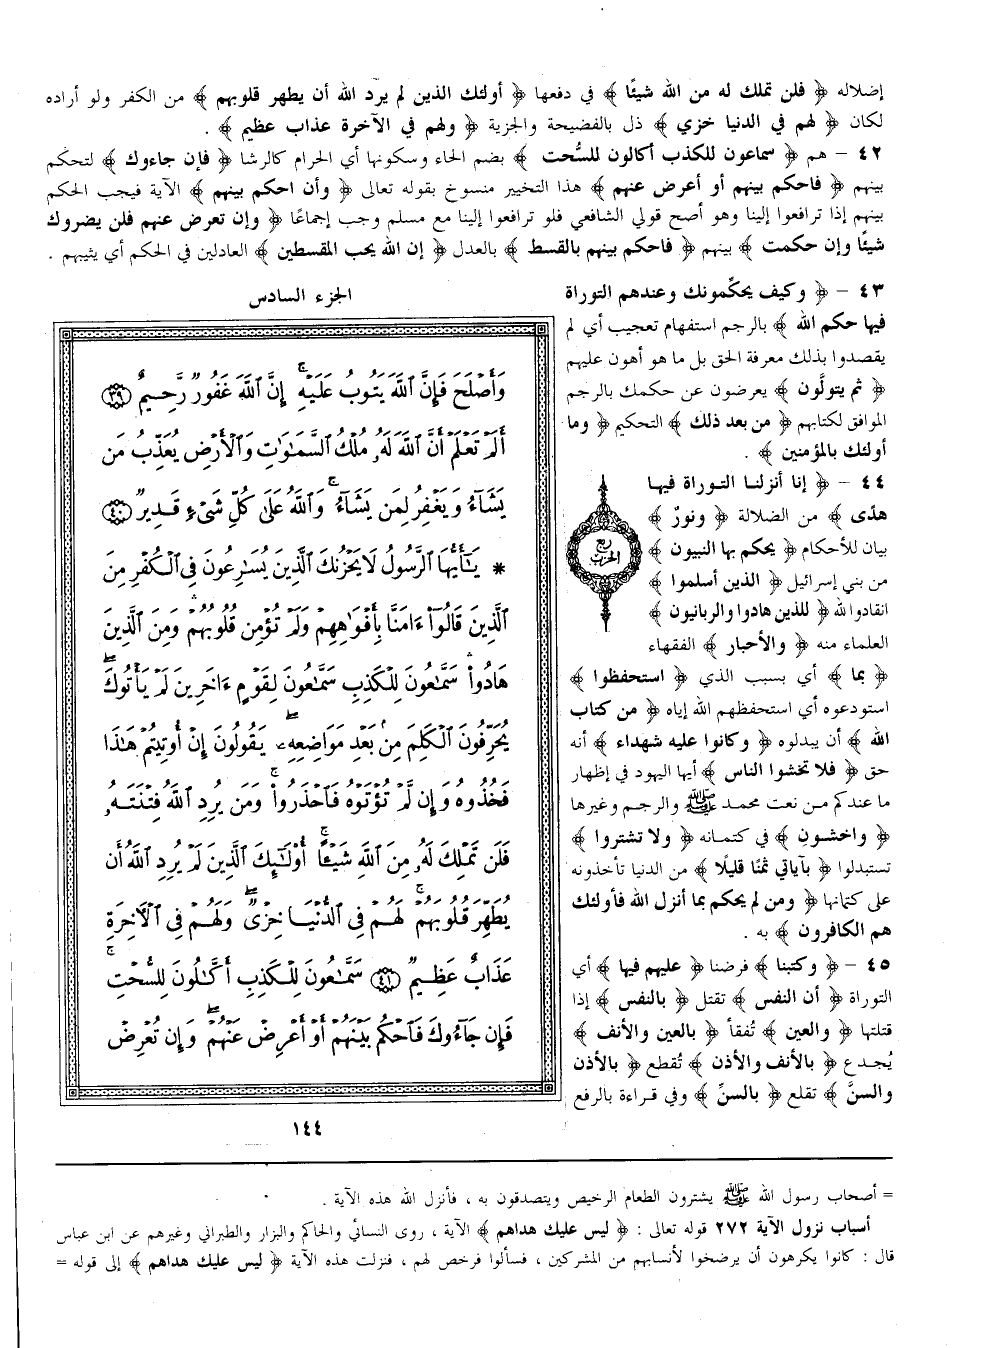 إضلاله ﴿ فلن تملك له من الله شيئًا ﴾ في دفعها ﴿ أولئك الذين لم يرد الله أن يطهر قلوبهم ﴾ من الكفر ولو أراده
لكان ﴿ لهم في الدنيا خزي ﴾ ذل بالفضيحة والجزية ﴿ ولهم في الآخرة عذاب عظيم ﴾ .
٤٢ – هم ﴿ سماعون للكذب أكالون للسُّحت ﴾ بضم الحاء وسكونها أي الحرام كالرشا ﴿ فإن جاءوك ﴾ لتحكم
بينهم ﴿ فاحكم بينهم أو أعرض عنهم ﴾ هذا التخيير منسوخ بقوله تعالى ﴿ وأن احكم بينهم ﴾ الآية فيجب الحكم
بينهم إذا ترافعوا إلينا وهو أصح قولي الشافعي فلو ترافعوا إلينا مع مسلم وجب إجماعًا ﴿ وإن تعرض عنهم فلن يضروك
شيئًا وإن حكمت ﴾ بينهم ﴿ فاحكم بينهم بالقسط ﴾ بالعدل ﴿ إن الله يحب المقسطين ﴾ العادلين في الحكم أي يثيبهم .
٤٣ – ﴿ وكيف يحكِّمونك وعندهم التوراة
فيها حكم الله ﴾ بالرجم استفهام تعجيب أي لم
يقصدوا بذلك معرفة الحق بل ما هو أهون عليهم
﴿ ثم يتولَّون ﴾ يعرضون عن حكمك بالرجم
الموافق لكتابهم ﴿ من بعد ذلك ﴾ التحكيم ﴿ وما
أولئك بالمؤمنين ﴾ .
٤٤ – ﴿ إنا أنزلنا التوراة فيها
هدًى ﴾ من الضلالة ﴿ ونورٌ ﴾
بيان للأحكام ﴿ يحكم بها النبيون ﴾
من بني إسرائيل ﴿ الذين أسلموا ﴾
انقادوا لله ﴿ للذين هادوا والربانيون ﴾
العلماء منه ﴿ والأحبار ﴾ الفقهاء
﴿ بما ﴾ أي بسبب الذي ﴿ استحفظوا ﴾
استودعوه أي استحفظهم الله إياه ﴿ من كتاب
الله ﴾ أن يبدلوه ﴿ وكانوا عليه شهداء ﴾ أنه
حق ﴿ فلا تخشوا الناس ﴾ أيها اليهود في إظهار
ما عندكم من نعت محمد ﷺ والرجم وغيرها
﴿ واخشون ﴾ في كتمانه ﴿ ولا تشتروا ﴾
تستبدلوا ﴿ بآياتي ثمنًا قليلًا ﴾ من الدنيا تأخذونه
على كتمانها ﴿ ومن لم يحكم بما أنزل الله فأولئك
هم الكافرون ﴾ به .
٤٥ – ﴿ وكتبنا ﴾ فرضنا ﴿ عليهم فيها ﴾ أي
التوراة ﴿ أن النفس ﴾ تقتل ﴿ بالنفس ﴾ إذا
قتلتها ﴿ والعين ﴾ تُفقأ ﴿ بالعين والأنف ﴾
يُجدع ﴿ بالأنف والأذن ﴾ تُقطع ﴿ بالأذن
والسنَّ ﴾ تقلع ﴿ بالسنِّ ﴾ وفي قراءة بالرفع
الجزء السادس
وَأَصۡلَحَ فَإِنَّ ٱللَّهَ يَتُوبُ عَلَيۡهِۚ إِنَّ ٱللَّهَ غَفُورٞ رَّحِيمٌ ۝٣٩
أَلَمۡ تَعۡلَمۡ أَنَّ ٱللَّهَ لَهُۥ مُلۡكُ ٱلسَّمَٰوَٰتِ وَٱلۡأَرۡضِ يُعَذِّبُ مَن
يَشَآءُ وَيَغۡفِرُ لِمَن يَشَآءُۗ وَٱللَّهُ عَلَىٰ كُلِّ شَيۡءٖ قَدِيرٞ ۝٤٠
* يَٰٓأَيُّهَا ٱلرَّسُولُ لَا يَحۡزُنكَ ٱلَّذِينَ يُسَٰرِعُونَ فِي ٱلۡكُفۡرِ مِنَ
ٱلَّذِينَ قَالُوٓاْ ءَامَنَّا بِأَفۡوَٰهِهِمۡ وَلَمۡ تُؤۡمِن قُلُوبُهُمۡۛ وَمِنَ ٱلَّذِينَ
هَادُواْۛ سَمَّٰعُونَ لِلۡكَذِبِ سَمَّٰعُونَ لِقَوۡمٍ ءَاخَرِينَ لَمۡ يَأۡتُوكَۖ
يُحَرِّفُونَ ٱلۡكَلِمَ مِنۢ بَعۡدِ مَوَاضِعِهِۦۖ يَقُولُونَ إِنۡ أُوتِيتُمۡ هَٰذَا
فَخُذُوهُ وَإِن لَّمۡ تُؤۡتَوۡهُ فَٱحۡذَرُواْۚ وَمَن يُرِدِ ٱللَّهُ فِتۡنَتَهُۥ
فَلَن تَمۡلِكَ لَهُۥ مِنَ ٱللَّهِ شَيۡـًٔاۚ أُوْلَٰٓئِكَ ٱلَّذِينَ لَمۡ يُرِدِ ٱللَّهُ أَن
يُطَهِّرَ قُلُوبَهُمۡۚ لَهُمۡ فِي ٱلدُّنۡيَا خِزۡيٞۖ وَلَهُمۡ فِي ٱلۡأٓخِرَةِ
عَذَابٌ عَظِيمٞ ۝٤١ سَمَّٰعُونَ لِلۡكَذِبِ أَكَّٰلُونَ لِلسُّحۡتِۚ
فَإِن جَآءُوكَ فَٱحۡكُم بَيۡنَهُمۡ أَوۡ أَعۡرِضۡ عَنۡهُمۡۖ وَإِن تُعۡرِضۡ
ربع
الحزب
١٤٤
= أصحاب رسول الله ﷺ يشترون الطعام الرخيص ويتصدقون به ، فأنزل الله هذه الآية .
أسباب نزول الآية ٢٧٢ قوله تعالى : ﴿ ليس عليك هداهم ﴾ الآية ، روى النسائي والحاكم والبزار والطبراني وغيرهم عن ابن عباس
قال : كانوا يكرهون أن يرضخوا لأنسابهم من المشركين ، فسألوا فرخص لهم ، فنزلت هذه الآية ﴿ ليس عليك هداهم ﴾ إلى قوله =